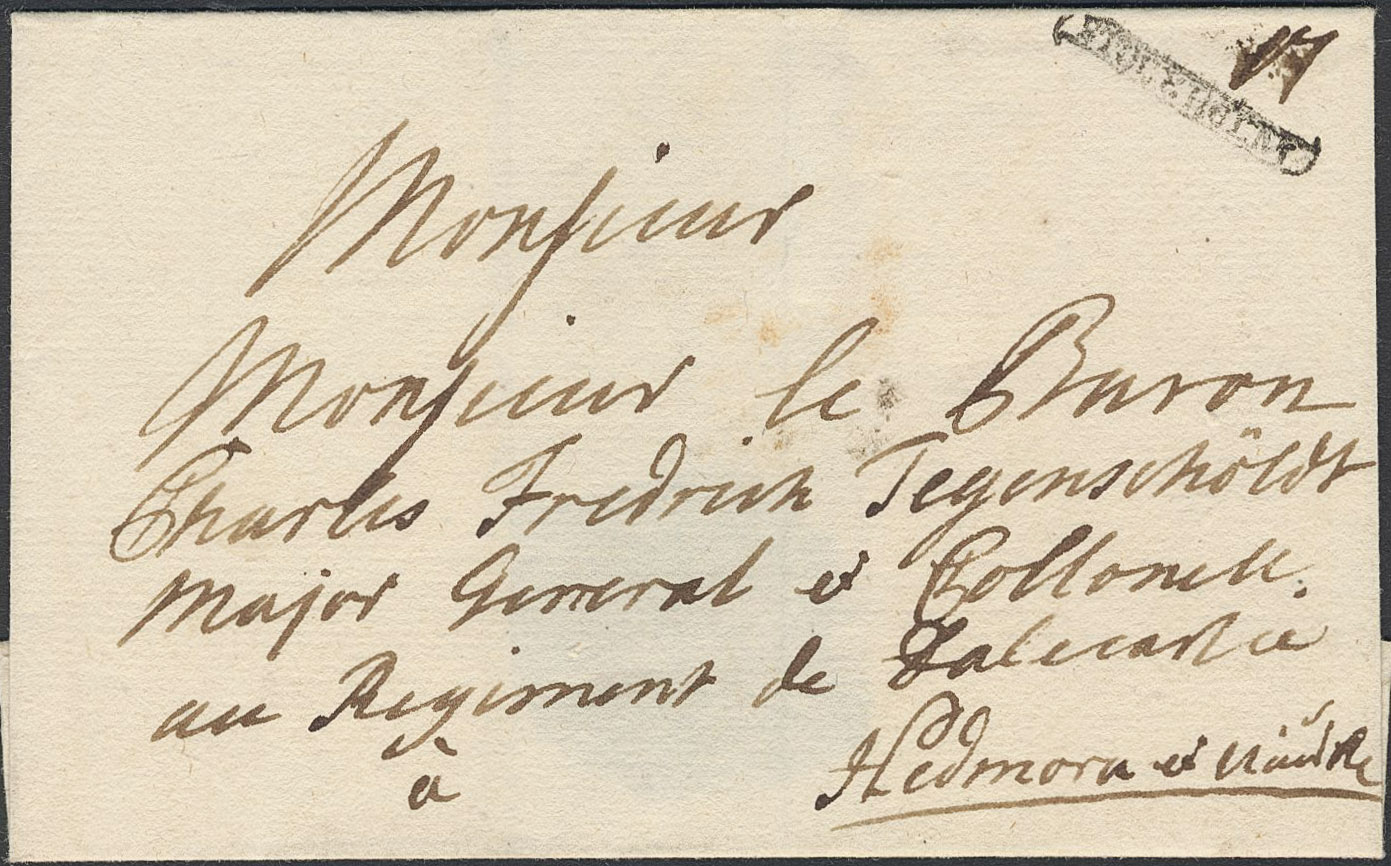 STOCKHOLM
Monsieur
Monsieur le Baron
Charles Fredrich Tegenschöldt
Major General et Collonell.
au Regiment de Dalecarlie
à
Hedmora et